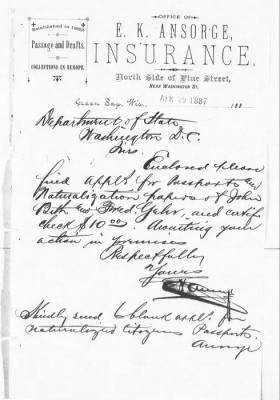 Established in 1866
Passage and Drafts.
COLLECTIONS IN EUROPE.
OFFICE OF
E. K. ANSORGE,
INSURANCE.
North Side of Pine Street,
NEAR WASHINGTON ST.
Green Bay, Wis. APR 29 1887 188
Department of State
Washington D.C.
Sirs
Enclosed please
find Appl. for Passports &
Naturalization papers of John
Beth & Fred. Gehr, and certif.
check $10.00. Awaiting your
action in premises
Respectfully
Yours
Ansorge
Kindly send blank appl. for
naturalized Citizens Passports.
Ansorge